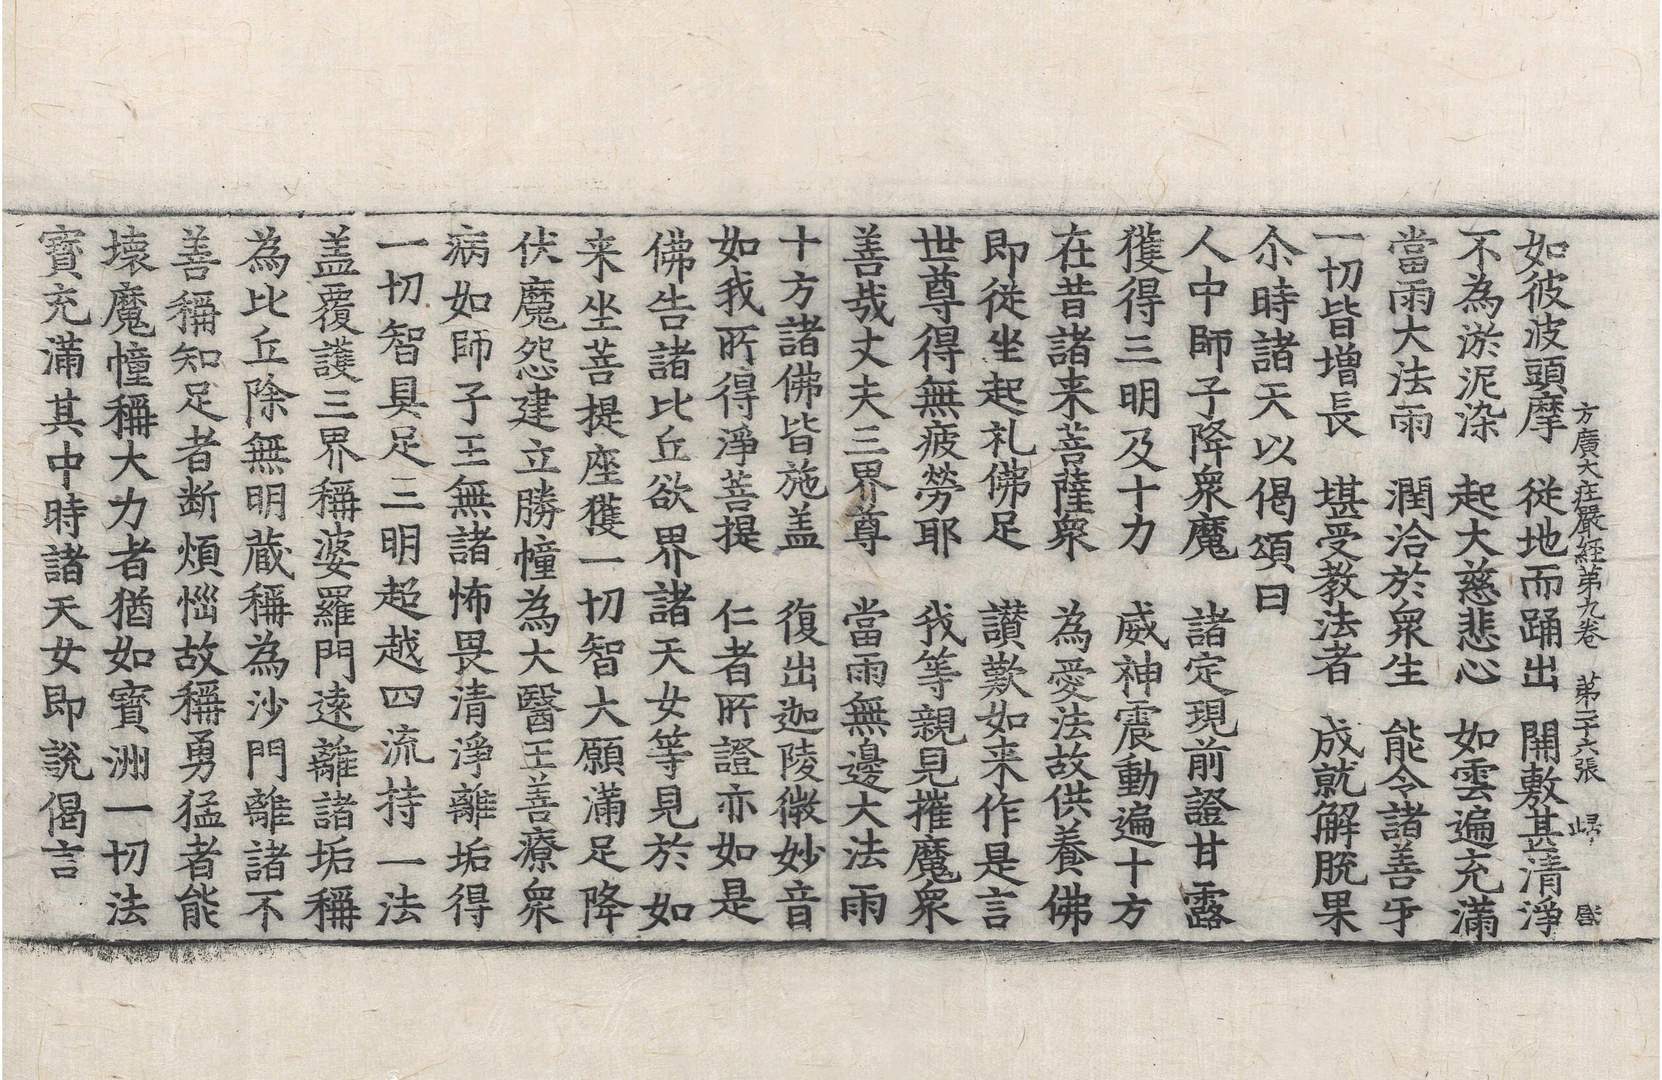 方廣大庄嚴經第九卷 第二十六張 歸
如彼波頭摩 從地而踊出 開敷甚清淨
不為淤泥染 起大慈悲心 如雲遍充滿
當雨大法雨 潤洽於衆生 能令諸善牙
一切皆增長 堪受教法者 成就解脫果
尒時諸天以偈頌曰
人中師子降衆魔 諸定現前證甘露
獲得三明及十力 威神震動遍十方
在昔諸来菩薩衆 為愛法故供養佛
即從坐起礼佛足 讃歎如来作是言
世尊得無疲勞耶 我等親見摧魔衆
善哉丈夫三界尊 當雨無邊大法雨
十方諸佛皆施盖 復出迦陵微妙音
如我所得淨菩提 仁者所證亦如是
佛告諸比丘欲界諸天女等見於如
来坐菩提座獲一切智大願滿足降
伏魔怨建立勝幢為大醫王善療衆
病如師子王無諸怖畏清淨離垢得
一切智具足三明超越四流持一法
盖覆護三界稱婆羅門遠離諸垢稱
為比丘除無明蔵稱為沙門離諸不
善稱知足者断煩惱故稱勇猛者能
壞魔幢稱大力者猶如寳洲一切法
寳充滿其中時諸天女即說偈言